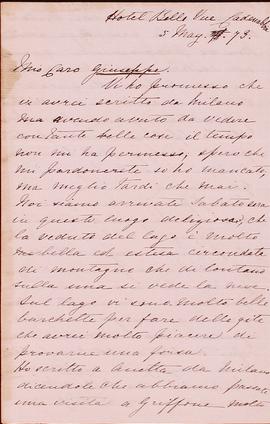 Hotel Belle Vue Cadenabbia
5 May. 73.
Mio Caro Giuseppe.
Vi ho promesso che
vi avrei scritto da Milano
ma avendo avuto da vedere
con tante belle cose il tempo
non mi ha permesso, spero che
mi perdonerete se ho mancato,
ma meglio tardi che mai.
Noi siamo arrivate Sabato sera
in questo luogo delizioso, che
la veduta del lago è molto
bella ed estesa circondata
di montagne che di lontano
sulla cima si vede la neve.
Sul lago vi sono molto belle
barchette per fare delle gite
che avrei molto piacere di
provarne una forsa.
Ho scritto a Anetta da Milano
dicendole che abbiamo passato
una visita a Griffone molto